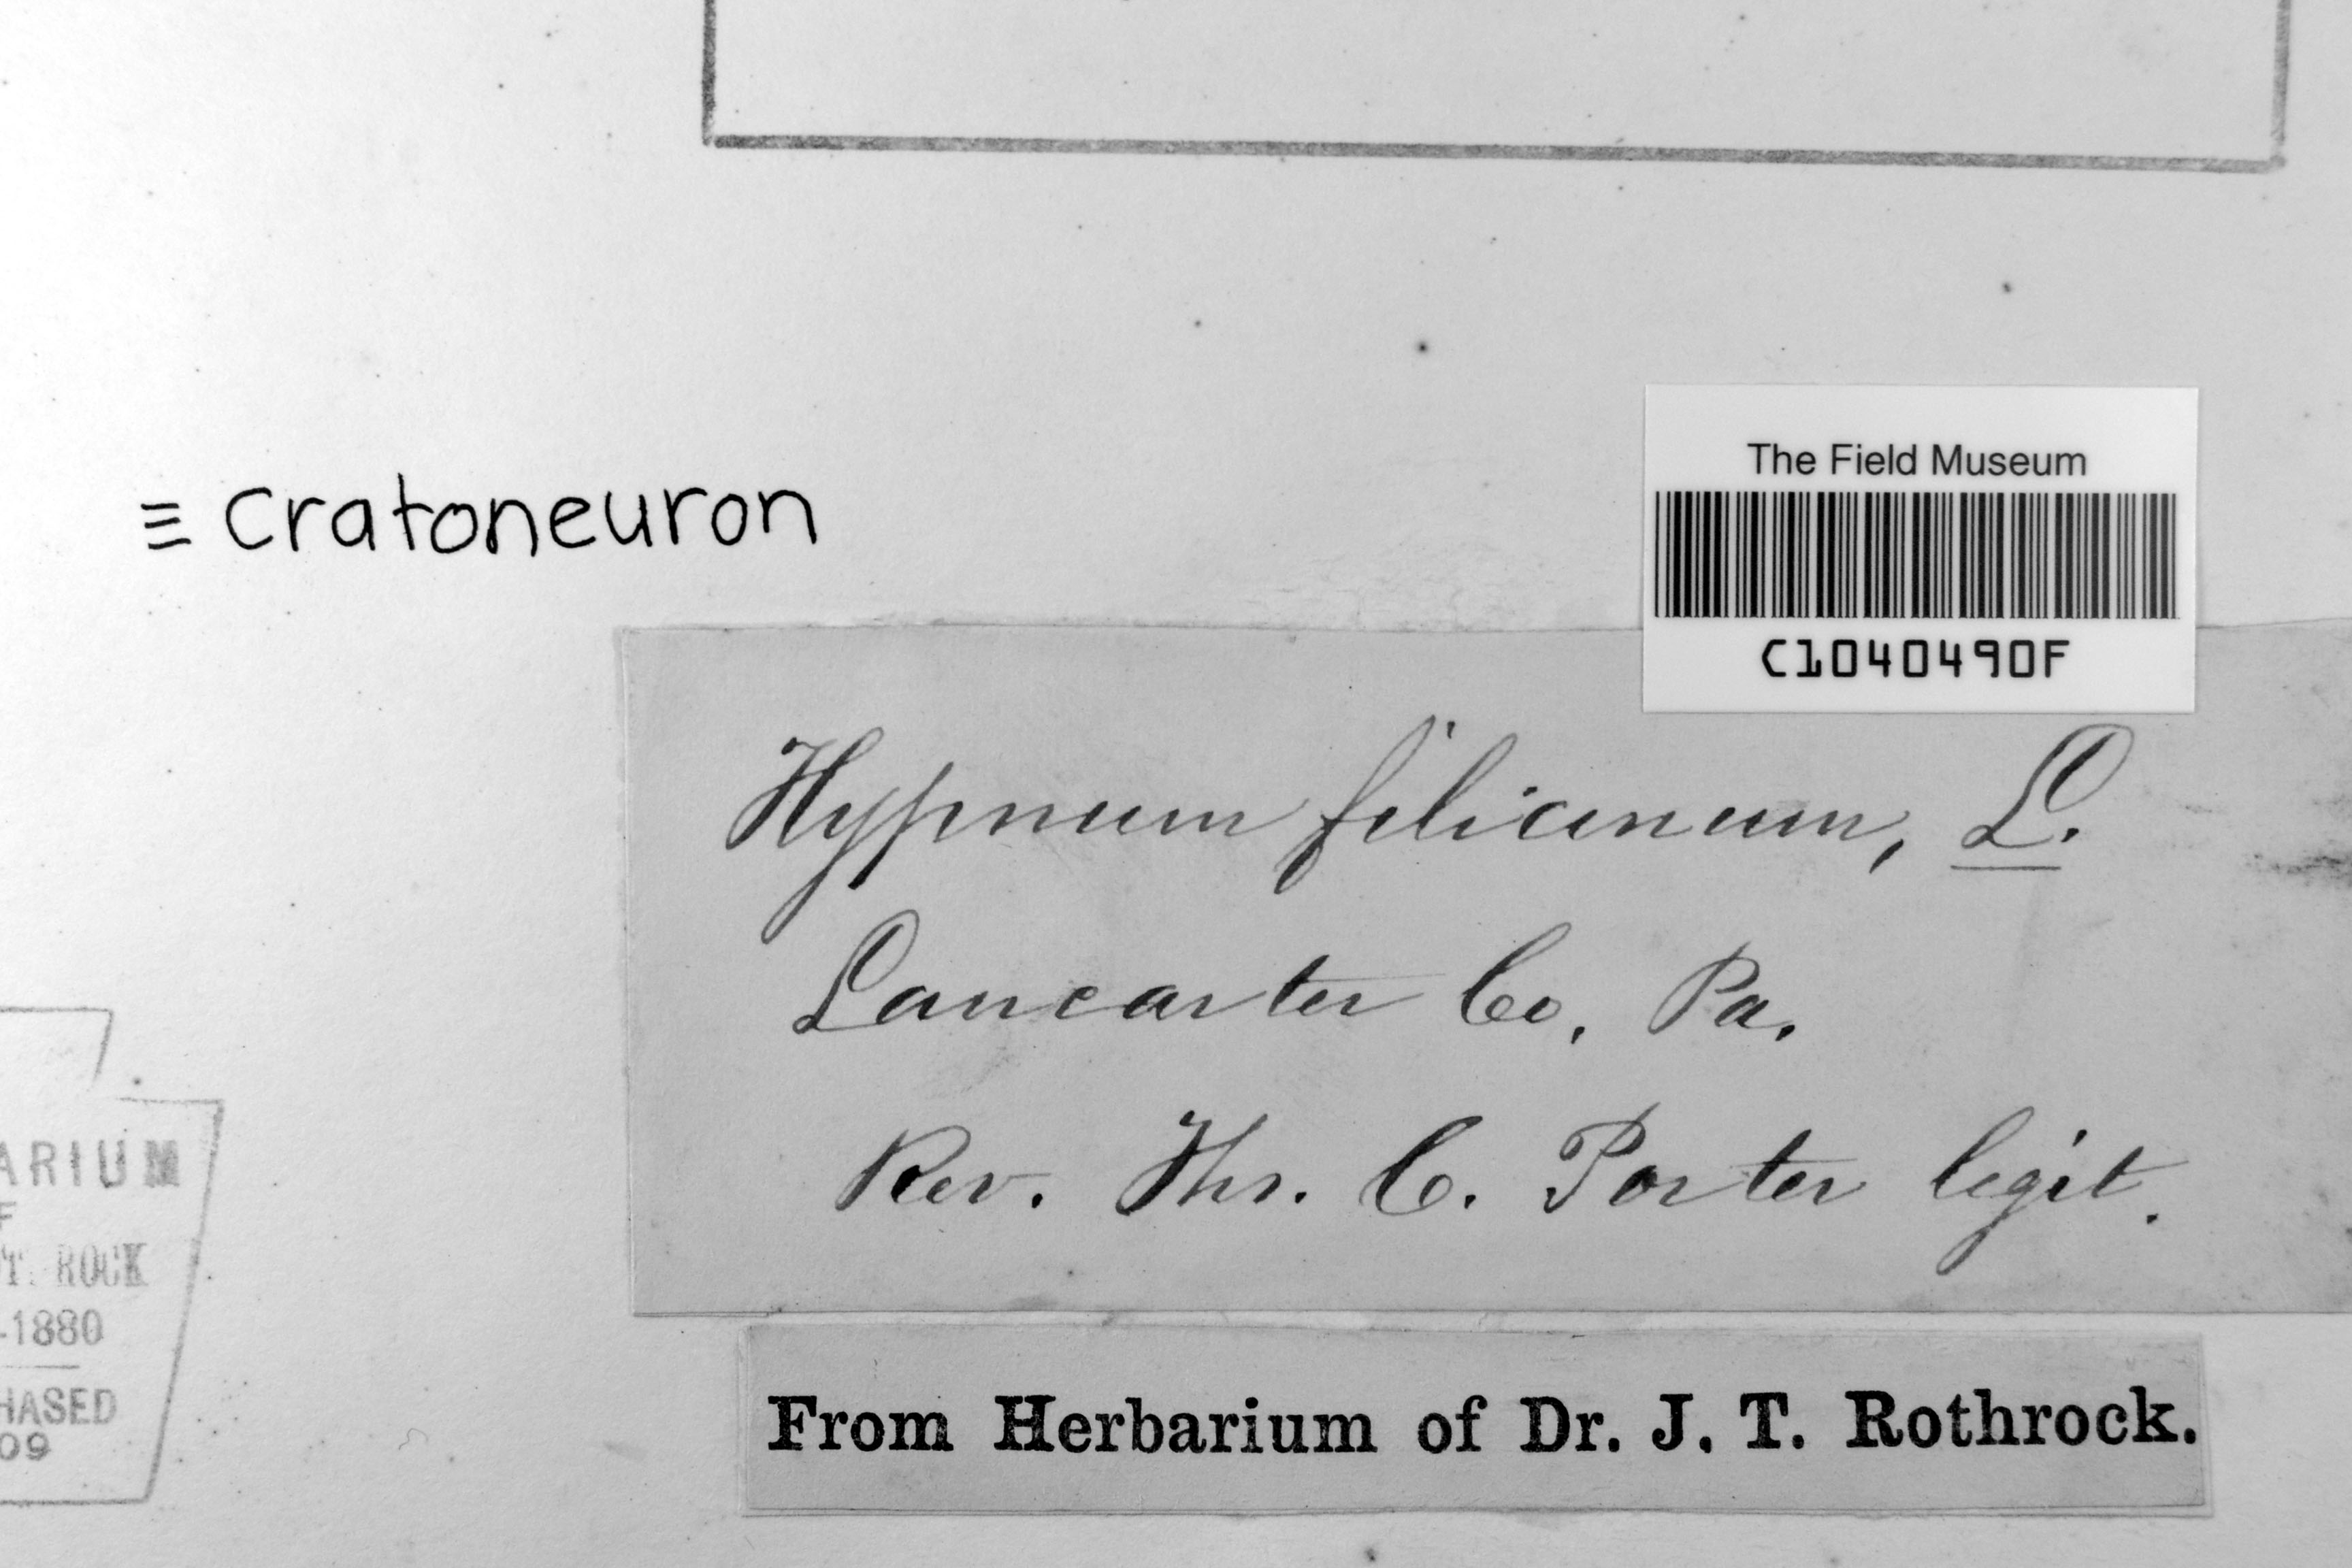 ≡ Cratoneuron
The Field Museum
C1040490F
Hypnum filicinum, L.
Lancaster Co. Pa.
Rev. Thos. C. Porter legit.
From Herbarium of Dr. J. T. Rothrock.
ARIUM
F
T. ROCK
-1880
HASED
09